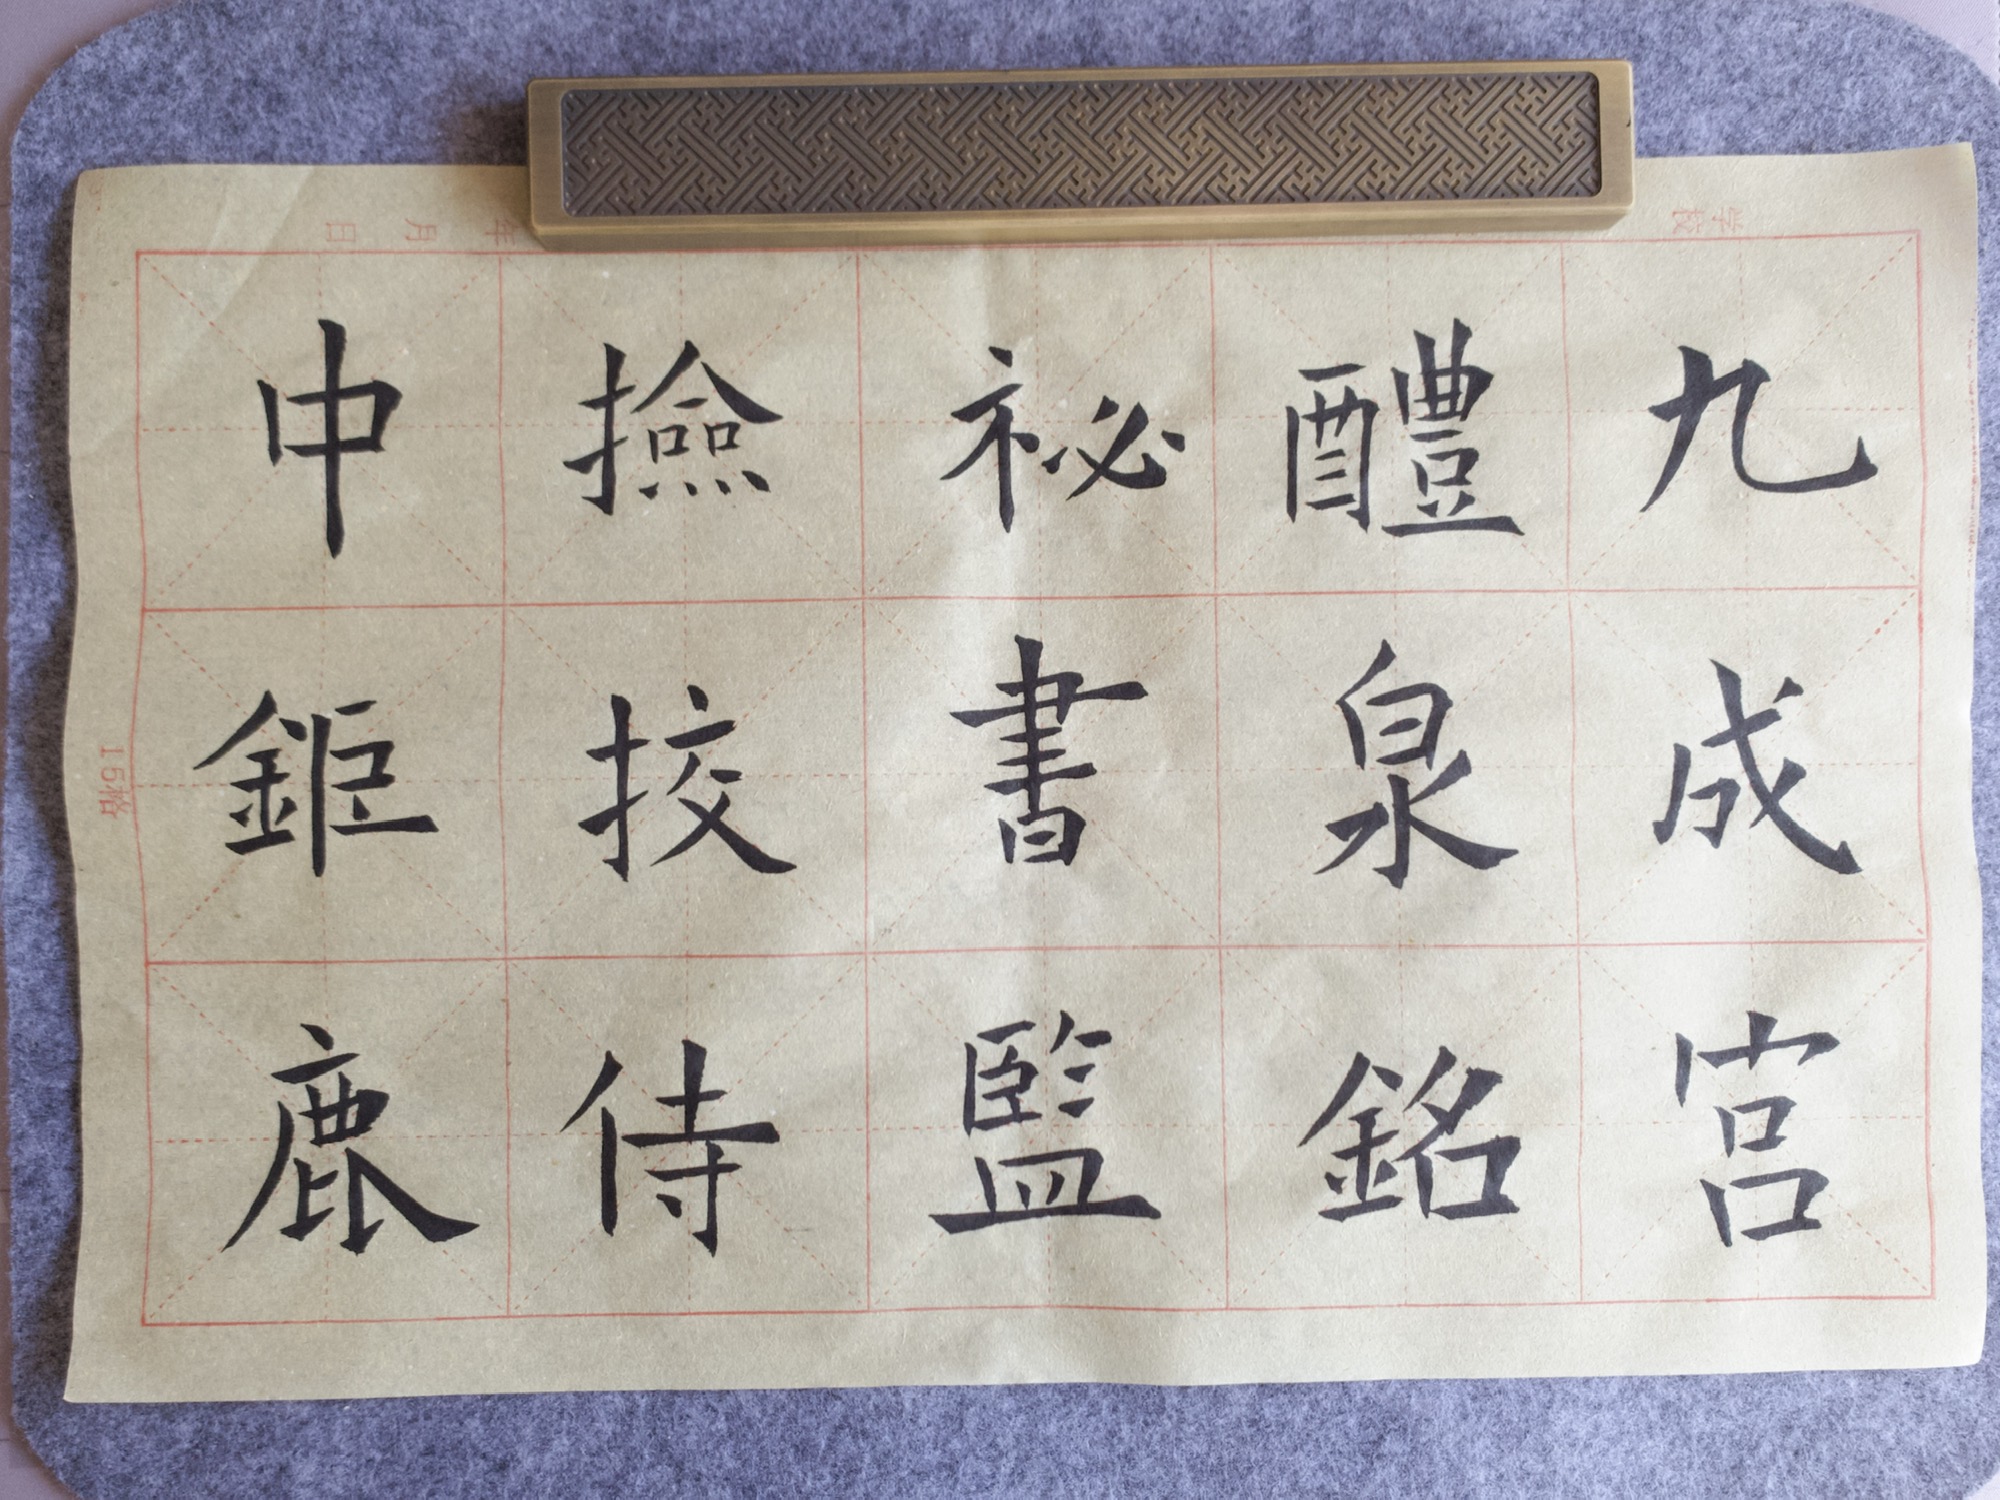 九成宮
醴泉銘
祕書監
撿挍侍
中鉅鹿
年 月 日
学校
15格